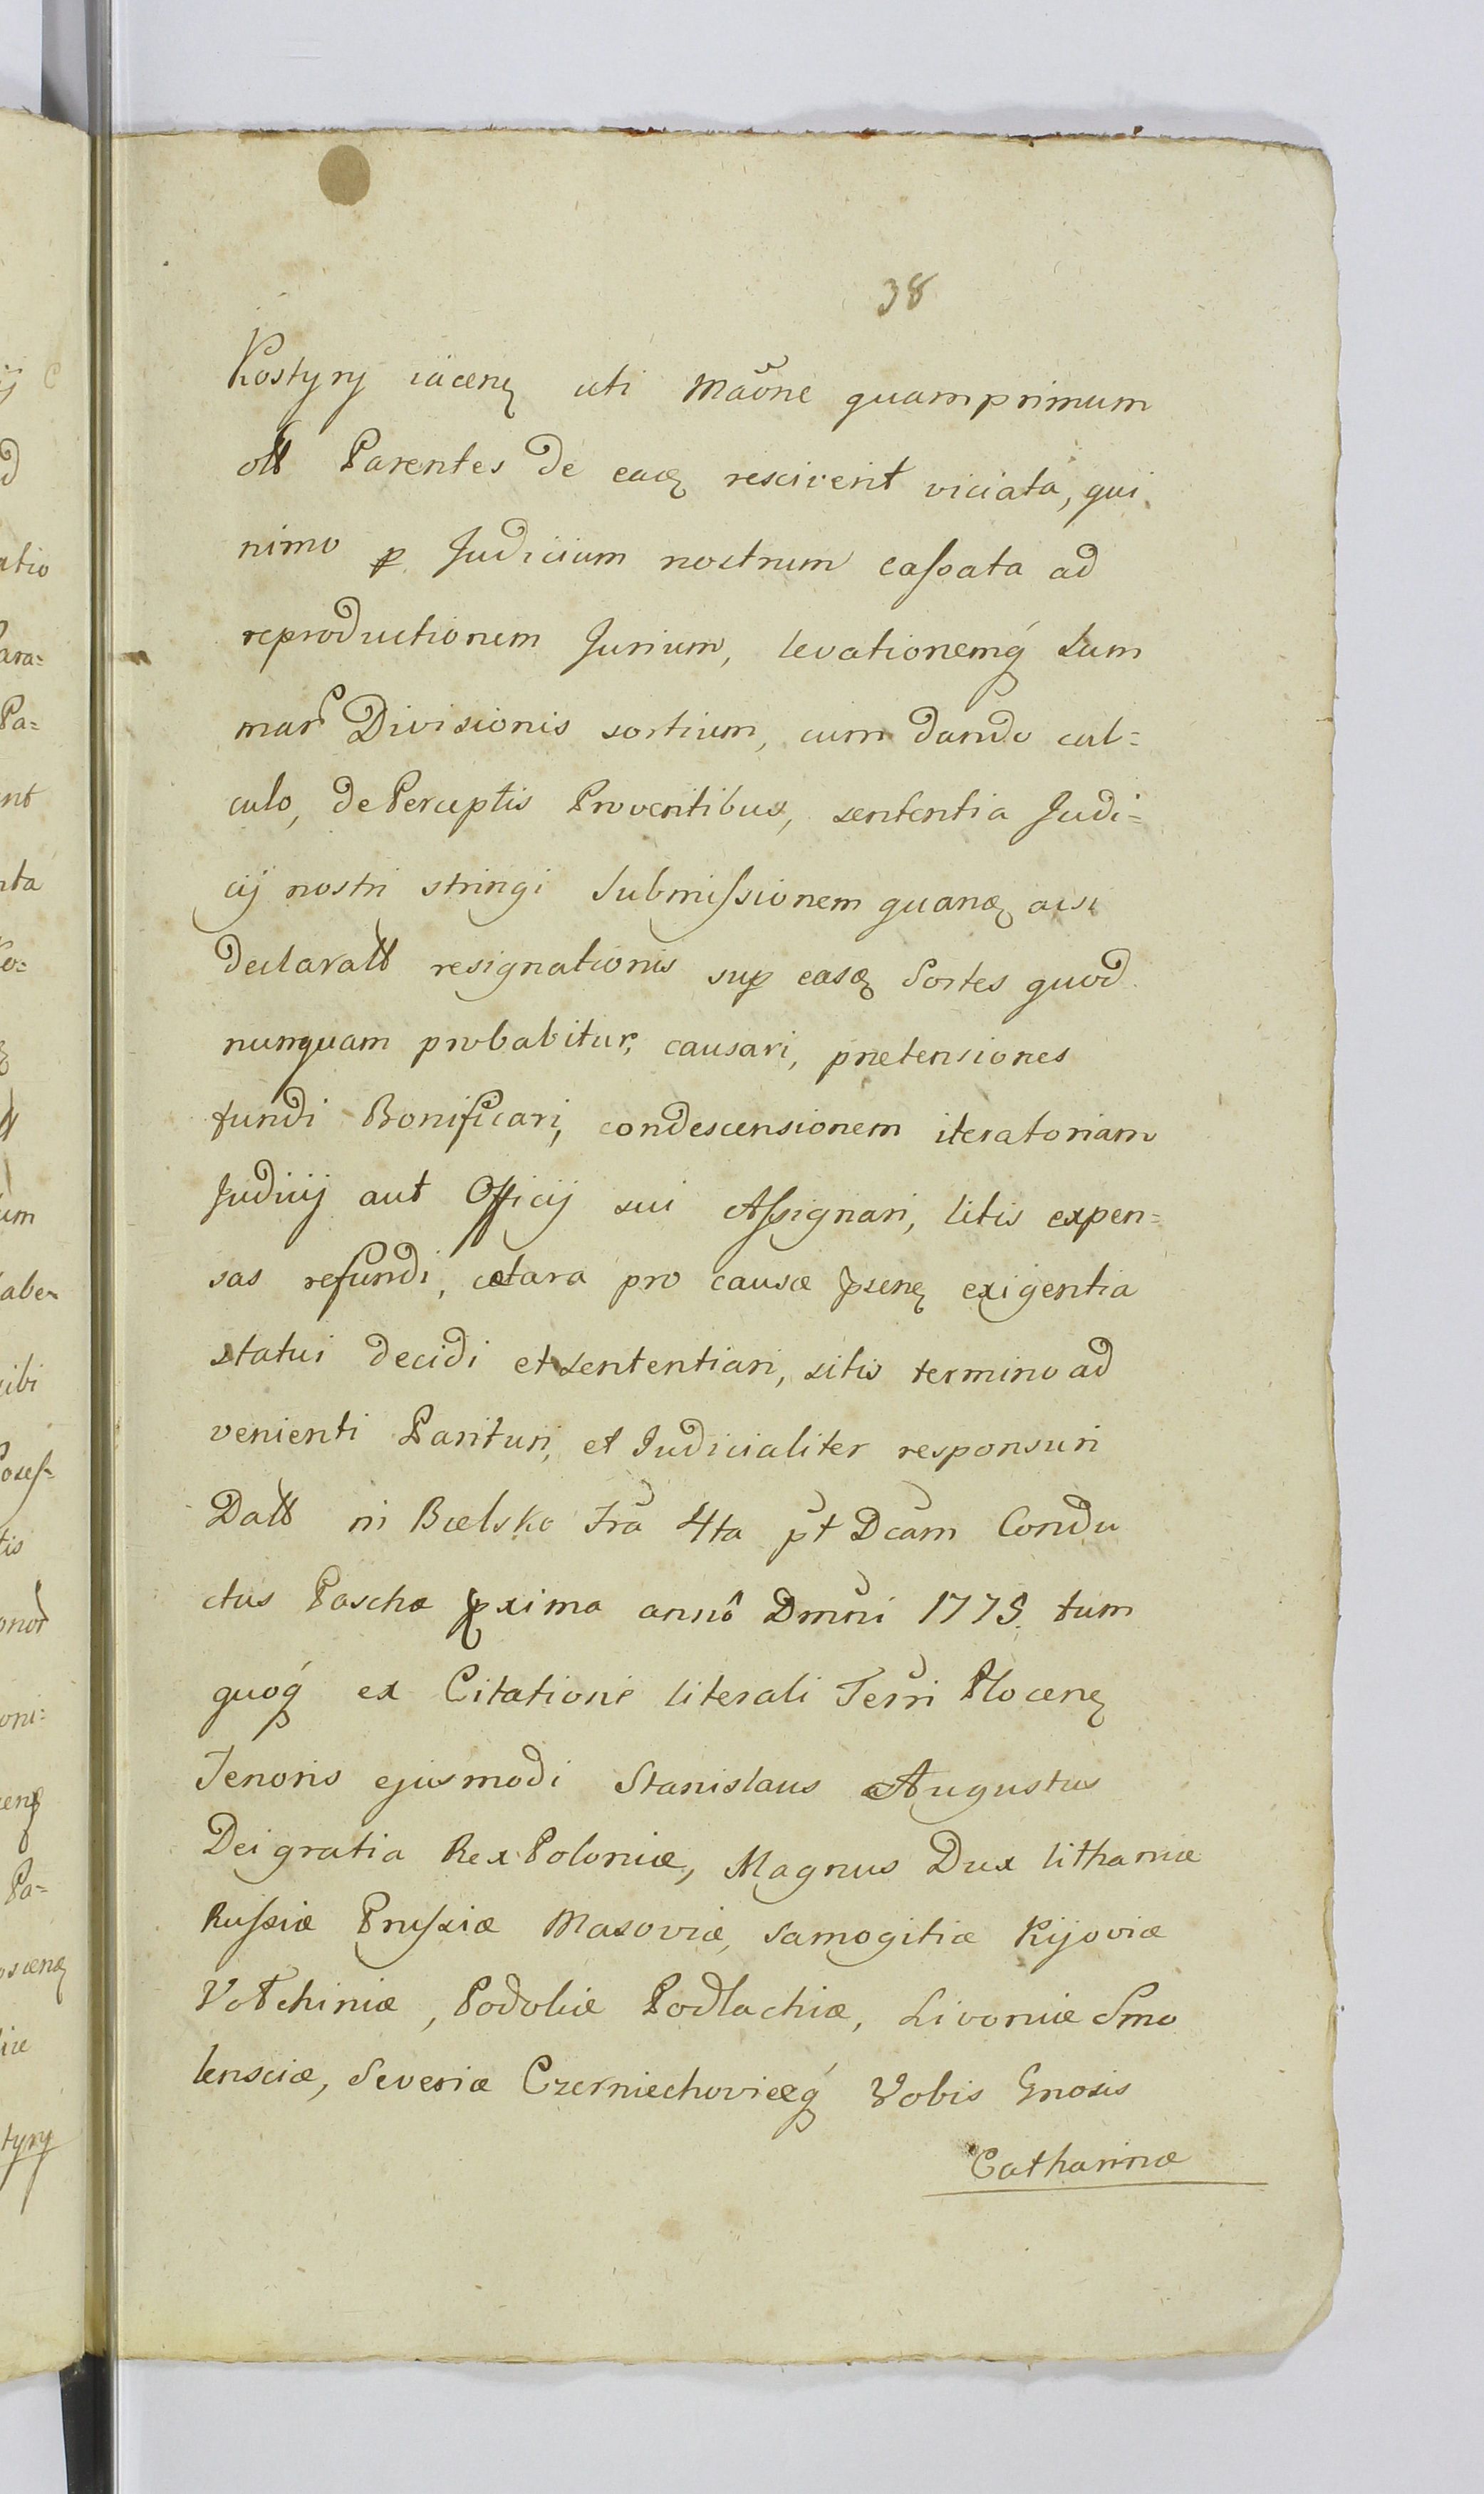 38
Kostyry iacenꝫ uti Maõne quamprimum
olt Parentes de eadꝫ resciverint viciata, qui
nimo ꝑ Judicium nostrum caſsata ad
reproductionem Jurium, levationemq́ Sum
mar Divisionis sortium, cum dando cal=
culo, de Perceptis Proventibus, sententia Judi=
cij nostri stringi Submiſsionem quanꝫ
declaratt resignationis sup easꝫ Sortes quod
nunquam probabitur, causari, prætensiones
fundi Bonificari, condescensionem iteratoriam
Judicij aut Officij sui Aſsignari, litis expen=
sas refundi, cætara pro causæ pꝛsenꝫ exigentia
statui decidi et sententiari, sitis termino ad
venienti Parituri, et Judicialiter responsuri
Datt in Bielsko Fra 4ta pt Dcam Condu
ctus Paschæ pxima anno Dmni 1775. tum
quoq́ ex Citatione literali Terri Plocenꝫ
Tenoris ejusmodi Stanislaus Augustus
Dei gratia Rex Poloniæ, Magnus Dux lithaniæ
Ruſsiæ Pruſsiæ Masoviæ, Samogitiæ Kijoviæ
Volchiniæ, Podoliæ Podlachiæ, Livoniæ Smo
lensciæ, Severiæ Czerniechoviæq́ Vobis Gnosis
Catharinæ